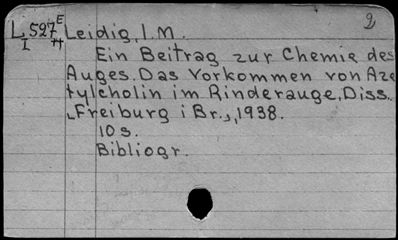 L 527 E Leidig, I. M. 2
I H
Ein Beitrag zur Chemie des
Auges. Das Vorkommen von Aze
tylcholin im Rinderauge, Diss.
Freiburg i Br., 1938.
10 s.
Bibliogr.